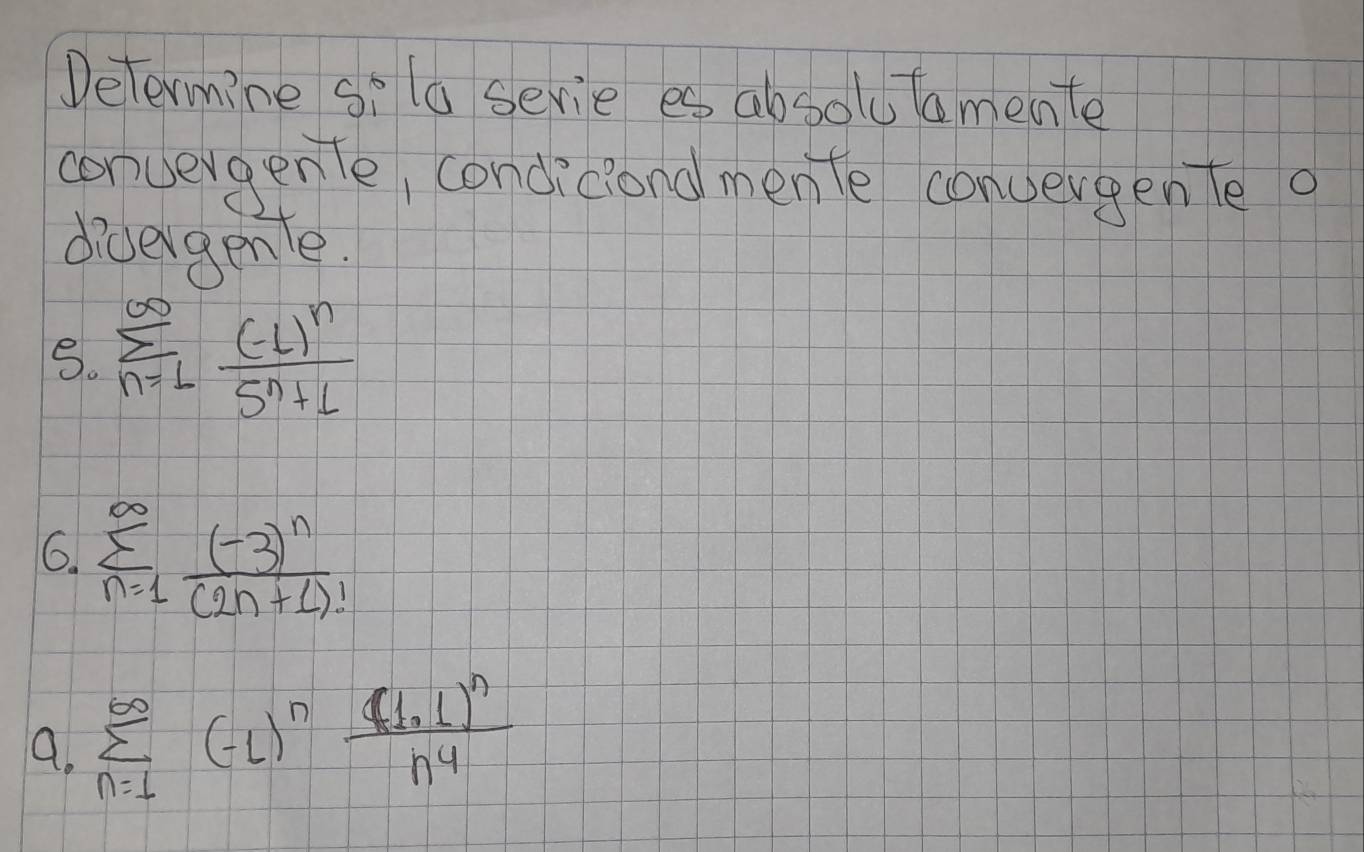 Determine si la serie es absolutamente
convergente, condicionalmente convergente o
divergente.
5. \sum_{n=1}^{\infty} \frac{(-1)^n}{5^n+1}
6. \sum_{n=1}^{\infty} \frac{(-3)^n}{(2n+1)!}
9. \sum_{n=1}^{\infty} (-1)^n \frac{(1.1)^n}{n^4}